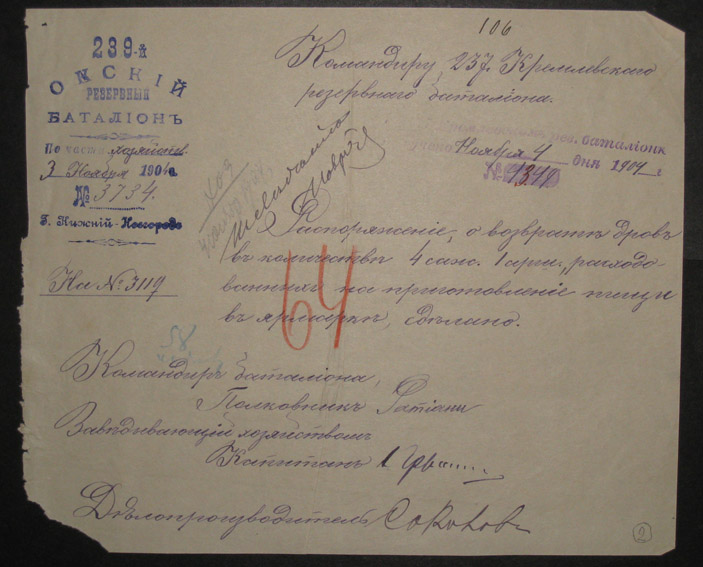 106
239-й
ОМСКІЙ
РЕЗЕРВНЫЙ
БАТАЛІОНЪ
По части хозяйств.
3 Ноября 1904 г.
№ 3734.
Г. Нижній-Новгородъ
На № 3119
Командиру 237. Кремлевскаго
резервнаго баталіона.
рез. баталіонъ
Ноября 4 дня 1904 г.
№
Распоряженіе, о возвратѣ дровъ
въ количествѣ 4 саж. 1 арш., расходо
ванныхъ на приготовленіе пищи
въ ярмаркѣ, сдѣлано.
64
58
Командиръ баталіона,
Полковникъ
Завѣдывающій хозяйствомъ
Капитанъ
Дѣлопроизводитель Соколовъ
2